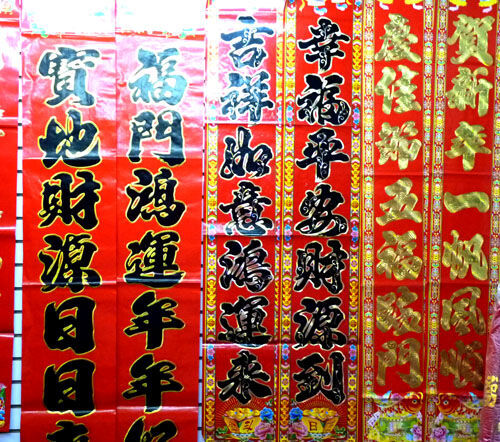 賀新年一帆風順
慶佳節五福臨門
幸福平安財源到
吉祥如意鴻運来
福門鴻運年年
寶地財源日日